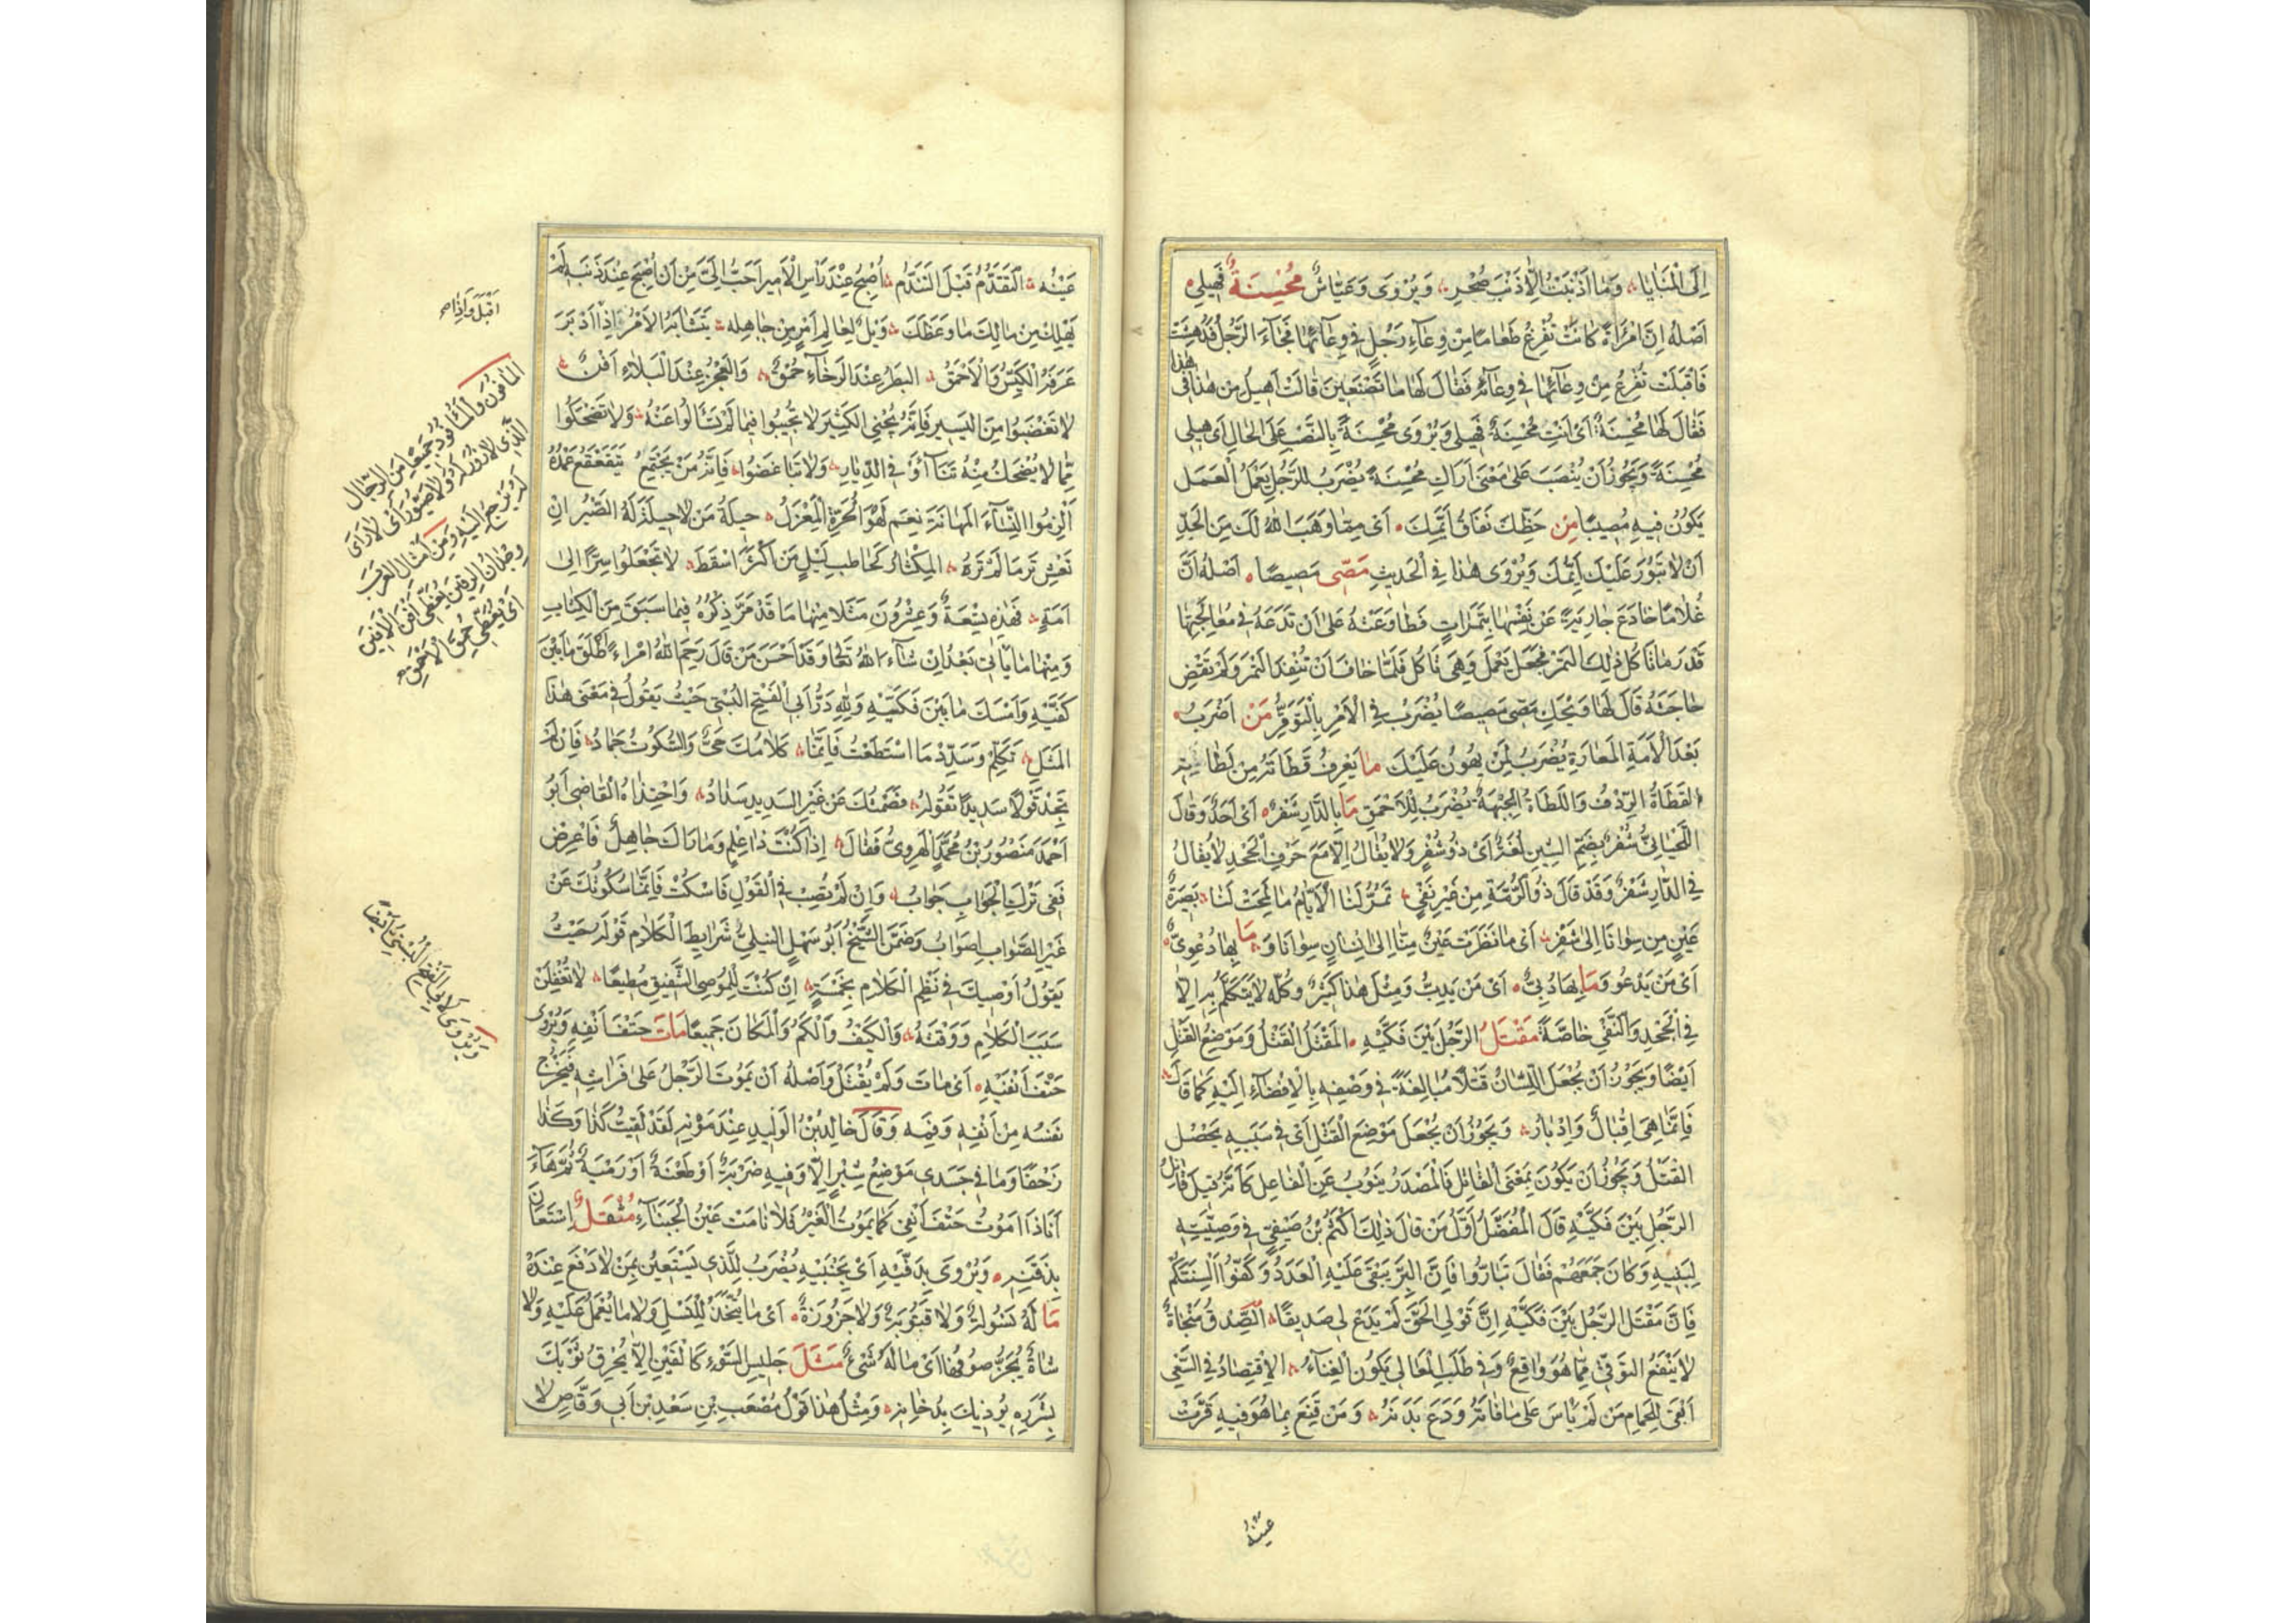 اِلَى الْمَنَايَا وَمَا اَذْنَبْتُ اِلَّا ذَنْبَ صُحْرٍ وَيُرْوَى وَعَيَّاشٌ مُحْسِنَةٌ فَهِيلِي
اَصْلُهُ اِنَّ امْرَاَةً كَانَتْ تُفْرِغُ طَعَامًا مِنْ وِعَاءِ رَجُلٍ فِي وِعَائِهَا فَجَاءَ الرَّجُلُ فَدُهِشَتْ
فَاَقْبَلَتْ تُفْرِغُ مِنْ وِعَائِهَا فِي وِعَائِهِ فَقَالَ لَهَا مَا تَصْنَعِينَ قَالَتْ اَهِيلُ مِنْ هٰذَا فِي هٰذَا
فَقَالَ لَهَا مُحْسِنَةٌ اَيْ اَنْتِ مُحْسِنَةٌ فَهِيلِي وَيُرْوَى مُحْسِنَةً بِالنَّصْبِ عَلَى الْحَالِ اَيْ هِيلِي
مُحْسِنَةً وَيَجُوزُ اَنْ يُنْصَبَ عَلَى مَعْنَى اَرَاكِ مُحْسِنَةً يُضْرَبُ لِلرَّجُلِ يَعْمَلُ الْعَمَلَ
يَكُونُ فِيهِ مُصِيبًا مِنْ حَظِّكَ نَفَاقُ اَيِّمِكَ اَيْ مِمَّا وَهَبَ اللهُ لَكَ مِنَ الْجَدِّ
اَنْ لَا تَبُورَ عَلَيْكَ اَيِّمُكَ وَيُرْوَى هٰذَا فِي الْحَدِيثِ مَصِّي مَصِيصًا اَصْلُهُ اَنَّ
غُلَامًا خَادَعَ جَارِيَةً عَنْ نَفْسِهَا بِتَمَرَاتٍ فَطَاوَعَتْهُ عَلَى اَنْ تَدَعَهُ فِي مُعَالَجَتِهَا
قَدْرَ مَا تَاْكُلُ ذٰلِكَ التَّمْرَ فَجَعَلَ يَعْمَلُ وَهِيَ تَاْكُلُ فَلَمَّا خَافَ اَنْ تُنْفِدَ التَّمْرَ وَلَمْ يَقْضِ
حَاجَتَهُ قَالَ لَهَا وَيْحَكِ مَصِّي مَصِيصًا يُضْرَبُ فِي الْاَمْرِ بِالتَّوَفُّرِ مَنْ اَضْرِبُ
بَعْدَ الْاَمَةِ الْمُعَارَةِ يُضْرَبُ لِمَنْ يَهُونُ عَلَيْكَ مَا يَعْرِفُ قَطَاتَهُ مِنْ لَطَاتِهِ
اَلْقَطَاةُ الرِّدْفُ وَاللَّطَاةُ الْجَبْهَةُ يُضْرَبُ لِلْاَحْمَقِ مَا بِالدَّارِ شَفْرٌ اَيْ اَحَدٌ وَقَالَ
اللِّحْيَانِيُّ شُفْرٌ بِضَمِّ الشِّينِ لُغَةٌ اَيْ ذُو شُفْرٍ وَلَا يُقَالُ اِلَّا مَعَ حَرْفِ الْجَحْدِ لَا يُقَالُ
فِي الدَّارِ شَفْرٌ وَقَدْ قَالَ ذُو الرُّمَّةِ مِنْ غَيْرِ نَفْيٍ تَمُرُّ لَنَا الْاَيَّامُ مَا لَمَحَتْ لَنَا بَصِيرَةُ
عَيْنٍ مِنْ سِوَانَا اِلَى شَفْرٍ اَيْ مَا نَظَرَتْ عَيْنٌ مِنَّا اِلَى اِنْسَانٍ سِوَانَا وَمَا بِهَا دُعْوِيٌّ
اَيْ مَنْ يَدْعُو وَمَا بِهَا دُبِّيٌّ اَيْ مَنْ يَدِبُّ وَمِثْلُ هٰذَا كَثِيرٌ وَكُلُّهُ لَا يُتَكَلَّمُ بِهِ اِلَّا
فِي الْجَحْدِ وَالنَّفْيِ خَاصَّةً مَقْتَلُ الرَّجُلِ بَيْنَ فَكَّيْهِ اَلْمَقْتَلُ الْقَتْلُ وَمَوْضِعُ الْقَتْلِ
اَيْضًا وَيَجُوزُ اَنْ يُجْعَلَ اللِّسَانُ قَتْلًا مُبَالَغَةً فِي وَصْفِهِ بِالْاِفْضَاءِ اِلَيْهِ كَمَا قَالَ
فَاِنَّمَا هِيَ اِقْبَالٌ وَاِدْبَارٌ وَيَجُوزُ اَنْ يُجْعَلَ مَوْضِعَ الْقَتْلِ اَيْ فِي سَبَبِهِ يَحْصُلُ
الْقَتْلُ وَيَجُوزُ اَنْ يَكُونَ بِمَعْنَى الْقَاتِلِ فَالْمَصْدَرُ يَنُوبُ عَنِ الْفَاعِلِ كَاَنَّهُ قِيلَ قَاتِلُ
الرَّجُلِ بَيْنَ فَكَّيْهِ قَالَ الْمُفَضَّلُ اَوَّلُ مَنْ قَالَ ذٰلِكَ اَكْثَمُ بْنُ صَيْفِيٍّ فِي وَصِيَّتِهِ
لِبَنِيهِ وَكَانَ جَمَعَهُمْ فَقَالَ تَبَارُّوا فَاِنَّ الْبِرَّ يَبْقَى عَلَيْهِ الْعَدَدُ وَكُفُّوا اَلْسِنَتَكُمْ
فَاِنَّ مَقْتَلَ الرَّجُلِ بَيْنَ فَكَّيْهِ اِنَّ قَوْلَ الْحَقِّ لَمْ يَدَعْ لِي صَدِيقًا اَلصِّدْقُ مَنْجَاةٌ
لَا يَنْفَعُ التَّوَقِّي مِمَّا هُوَ وَاقِعٌ وَفِي طَلَبِ الْمَعَالِي يَكُونُ الْعَنَاءُ اَلْاِقْتِصَادُ فِي السَّعْيِ
اَبْقَى لِلْجِمَامِ مَنْ لَمْ يَاْسَ عَلَى مَا فَاتَهُ وَدَعَ بَدَنَهُ وَمَنْ قَنِعَ بِمَا هُوَ فِيهِ قَرَّتْ
عَيْنُهُ
عَيْنُهُ اَلتَّقَدُّمُ قَبْلَ التَّنَدُّمِ اُصْبِحُ عِنْدَ رَاْسِ الْاَمِيرِ اَحَبُّ اِلَيَّ مِنْ اَنْ اُصْبِحَ عِنْدَ ذَنَبِهِ لَمْ
يَهْلِكْ مِنْ مَالِكَ مَا وَعَظَكَ وَيْلٌ لِعَالِمِ اَمْرٍ مِنْ جَاهِلِهِ يَتَشَابَهُ الْاَمْرُ اِذَا اَدْبَرَ
اَقْبَلَ وَاِذَا صح
عَرَفَهُ الْكَيِّسُ وَالْاَحْمَقُ اَلْبَطَرُ عِنْدَ الرَّخَاءِ حُمْقٌ وَالْعَجْزُ عِنْدَ الْبَلَاءِ اَفْنٌ
لَا تَغْضَبُوا مِنَ الْيَسِيرِ فَاِنَّهُ يُجْنِي الْكَثِيرَ لَا تُجِيبُوا فِيمَا لَمْ تُسْاَلُوا عَنْهُ وَلَا تَضْحَكُوا
مِمَّا لَا يُضْحَكُ مِنْهُ تَنَاءَوْا فِي الدِّيَارِ وَلَا تَبَاغَضُوا فَاِنَّهُ مَنْ يَجْتَمِعْ يَتَقَعْقَعْ عَمَدُهُ
اَلْزِمُوا النِّسَاءَ الْمَهَانَةَ نِعْمَ لَهْوُ الْحُرَّةِ الْمِغْزَلُ حِيلَةُ مَنْ لَا حِيلَةَ لَهُ الصَّبْرُ اِنْ
تَعِشْ تَرَ مَا لَمْ تَرَهُ اَلْمِكْثَارُ كَحَاطِبِ لَيْلٍ مَنْ اَكْثَرَ اَسْقَطَ لَا تَجْعَلُوا سِرًّا اِلَى
اَمَةٍ فَهٰذِهِ تِسْعَةٌ وَعِشْرُونَ مَثَلًا مِنْهَا مَا قَدْ مَرَّ ذِكْرُهُ فِيمَا سَبَقَ مِنَ الْكِتَابِ
وَمِنْهَا مَا يَاْتِي بَعْدُ اِنْ شَاءَ اللهُ تَعَالَى وَقَدْ اَحْسَنَ مَنْ قَالَ رَحِمَ اللهُ امْرَاءً اَطْلَقَ مَا بَيْنَ
كَفَّيْهِ وَاَمْسَكَ مَا بَيْنَ فَكَّيْهِ وَلِلّٰهِ دَرُّ اَبِي الْفَتْحِ الْبُسْتِيِّ حَيْثُ يَقُولُ فِي مَعْنَى هٰذَا
الْمَثَلِ تَكَلَّمْ وَسَدِّدْ مَا اسْتَطَعْتَ فَاِنَّمَا كَلَامُكَ حَيٌّ وَالسُّكُوتُ جَمَادُ فَاِنْ لَمْ
تَجِدْ قَوْلًا سَدِيدًا تَقُولُهُ فَصَمْتُكَ عَنْ غَيْرِ السَّدِيدِ سَدَادُ وَاحْتَذَاهُ الْقَاضِي اَبُو
اَحْمَدَ مَنْصُورُ بْنُ مُحَمَّدٍ الْهَرَوِيُّ فَقَالَ اِذَا كُنْتَ ذَا عِلْمٍ وَمَارَاكَ جَاهِلٌ فَاَعْرِضْ
فَفِي تَرْكِ الْجَوَابِ جَوَابُ وَاِنْ لَمْ تُصِبْ فِي الْقَوْلِ فَاسْكُتْ فَاِنَّمَا سُكُوتُكَ عَنْ
غَيْرِ الصَّوَابِ صَوَابُ وَضَمَّنَ الشَّيْخُ اَبُو سَهْلٍ النِّيلِيُّ شَرَايِطَ الْكَلَامِ قَوْلَهُ حَيْثُ
يَقُولُ اُوصِيكَ فِي نَظْمِ الْكَلَامِ بِخَمْسَةٍ اِنْ كُنْتَ لِلْمُوصِي الشَّفِيقِ مُطِيعًا لَا تُغْفِلَنْ
سَبَبَ الْكَلَامِ وَوَقْتَهُ وَالْكَيْفَ وَالْكَمَّ وَالْمَكَانَ جَمِيعًا مَاتَ حَتْفَ اَنْفِهِ وَيُرْوَى
حَتْفَ اَنْفَيْهِ اَيْ مَاتَ وَلَمْ يُقْتَلْ وَاَصْلُهُ اَنْ يَمُوتَ الرَّجُلُ عَلَى فِرَاشِهِ فَيَخْرُجَ
نَفْسُهُ مِنْ اَنْفِهِ وَفَمِهِ وَقَالَ خَالِدُ بْنُ الْوَلِيدِ عِنْدَ مَوْتِهِ لَقَدْ لَقِيتُ كَذَا وَكَذَا
زَحْفًا وَمَا فِي جَسَدِي مَوْضِعُ شِبْرٍ اِلَّا وَفِيهِ ضَرْبَةٌ اَوْ طَعْنَةٌ اَوْ رَمْيَةٌ ثُمَّ هَا
اَنَا ذَا اَمُوتُ حَتْفَ اَنْفِي كَمَا يَمُوتُ الْعَيْرُ فَلَا نَامَتْ عَيْنُ الْجُبَنَاءِ مُثْقَلٌ اِسْتَعَانَ
بِذَقَنِهِ وَيُرْوَى بِدَفَّيْهِ اَيْ بِجَنْبَيْهِ يُضْرَبُ لِلَّذِي يَسْتَعِينُ بِمَنْ لَا دَفْعَ عِنْدَهُ
مَا لَهُ نَسُولَةٌ وَلَا قَتُوبَةٌ وَلَا جَزُوزَةٌ اَيْ مَا يُتَّخَذُ لِلنَّسْلِ وَلَا مَا يُعْمَلُ عَلَيْهِ وَلَا
شَاةٌ يُجَزُّ صُوفُهَا اَيْ مَا لَهُ شَيْءٌ مَثَلُ جَلِيسِ السُّوءِ كَالْقَيْنِ اِلَّا يُحْرِقْ ثَوْبَكَ
بِشَرَرِهِ يُوذِيكَ بِدُخَانِهِ وَمِثْلُ هٰذَا قَوْلُ مُصْعَبِ بْنِ سَعْدِ بْنِ اَبِي وَقَّاصٍ لَا
الْمَاْفُونُ وَالْمَاْفُوكُ جَمِيعًا مِنَ الرِّجَالِ
الَّذِي لَا زَوْرَ لَهُ وَلَا صَيُّورَ اَيْ لَا رَاْيَ
لَهُ يَرْجِعُ اِلَيْهِ وَمِنْ اَمْثَالِ الْعَرَبِ
وِجْدَانُ الرِّقِينَ يُغَطِّي اَفْنَ الْاَفِينَ
اَيْ يُغَطِّي حُمْقَ الْاَحْمَقِ
وَيُرْوَى لِاَبِي الْفَتْحِ الْبُسْتِيِّ اَيْضًا